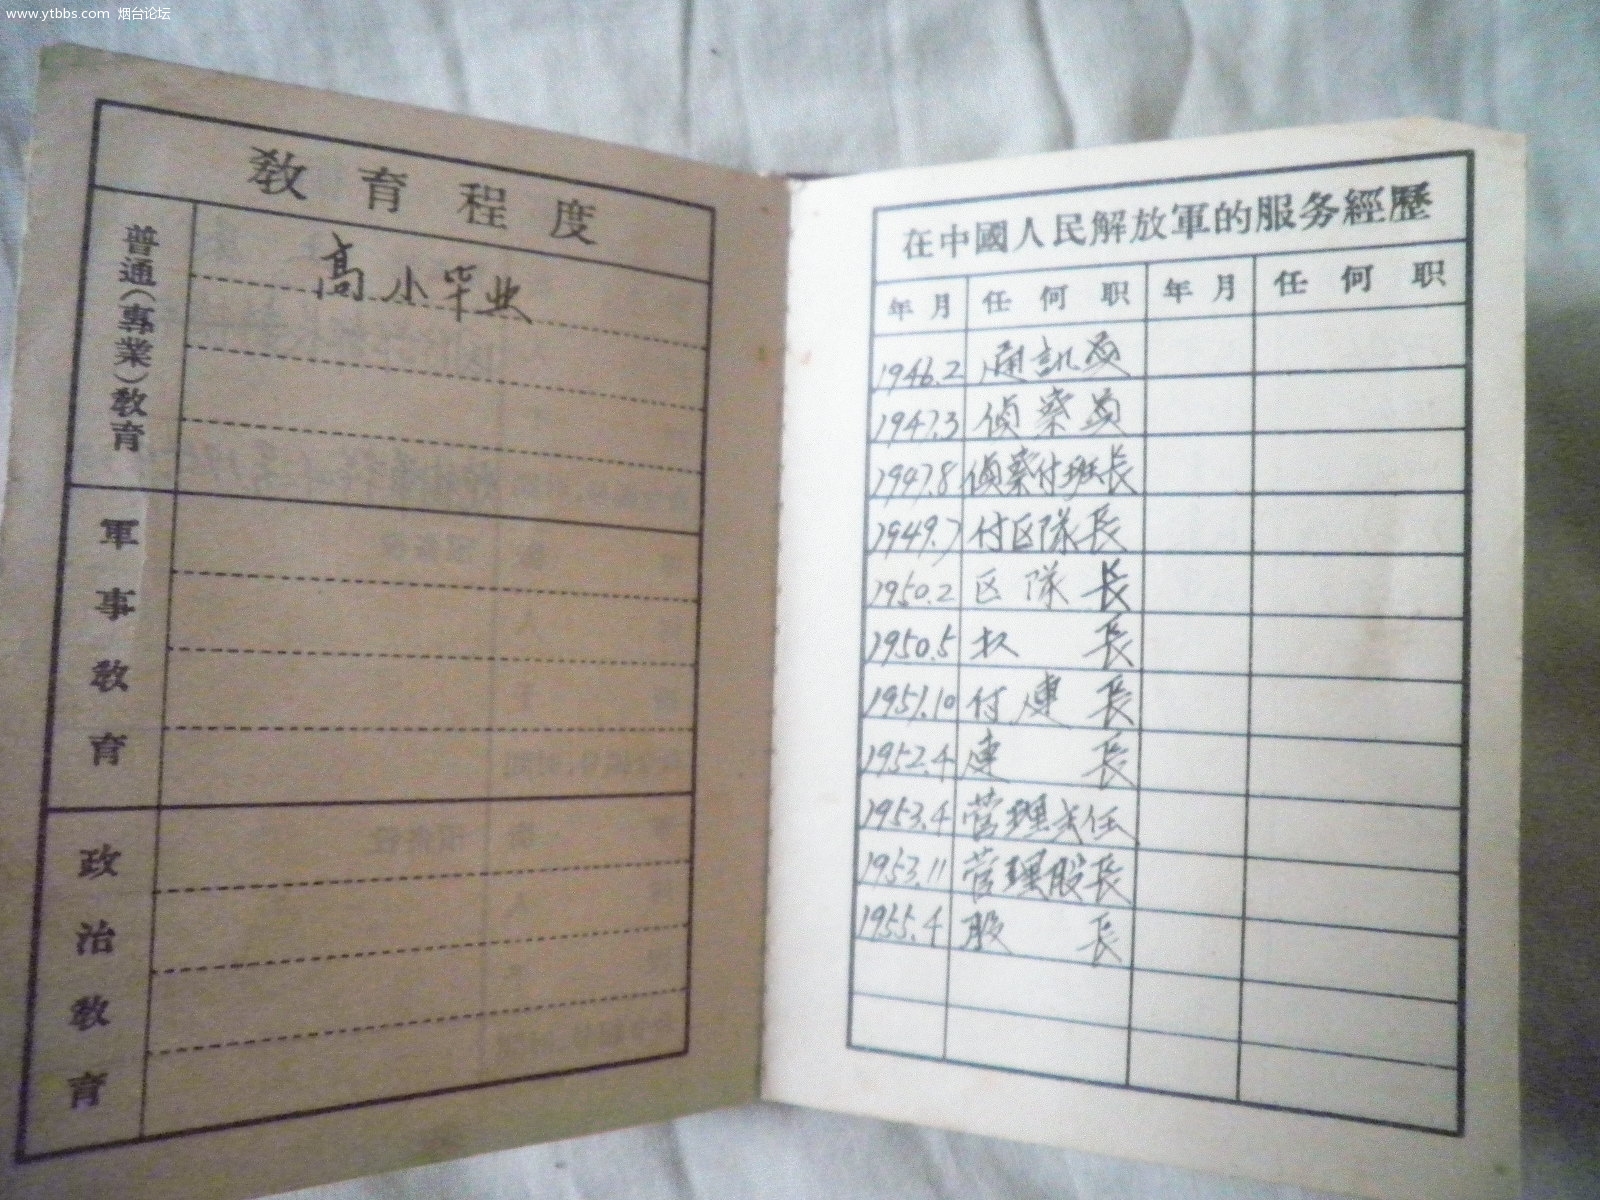 www.ytbbs.com 烟台论坛
敎育程度
普通(專業)敎育
高小毕业
軍事敎育
政治敎育
在中國人民解放軍的服务經歷
年月 任何职 年月 任何职
1946.2 通訊員
1947.3 偵察員
1947.8 偵察付班长
1949.7 付区隊長
1950.2 区隊长
1950.5 長
1951.10 付連長
1952.4 連長
1953.4 管理主任
1953.11 管理股長
1955.4 股長